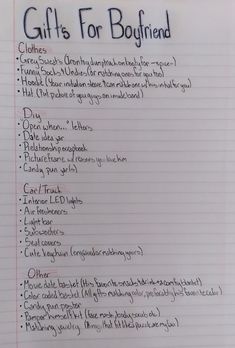 Gifts For Boyfriend
Clothes
• Grey Sweats
• Funny Socks + Undies (or matching ones for you too)
• Hoodie (Your initial on sleeve + can match one w/ his initial for you)
• Hat (Put picture of you guys on inside band)
Diy
• "Open when..." letters
• Date idea jar
• Relationship scrapbook
• Picture frame w/ reasons you love him
• Candy pun
Car/Truck
• Interior LED lights
• Air fresheners
• Light bar
• Subwoofers
• Seat covers
• Cute keychain (matching yours)
Other
• Movie date basket (His favorite snacks + drink + a comfy blanket)
• Color coded basket (All gifts matching color, preferably his favorite color)
• Candy pun poster
• Pamper himself kit (face mask, body scrub, etc)
• Matching jewelry